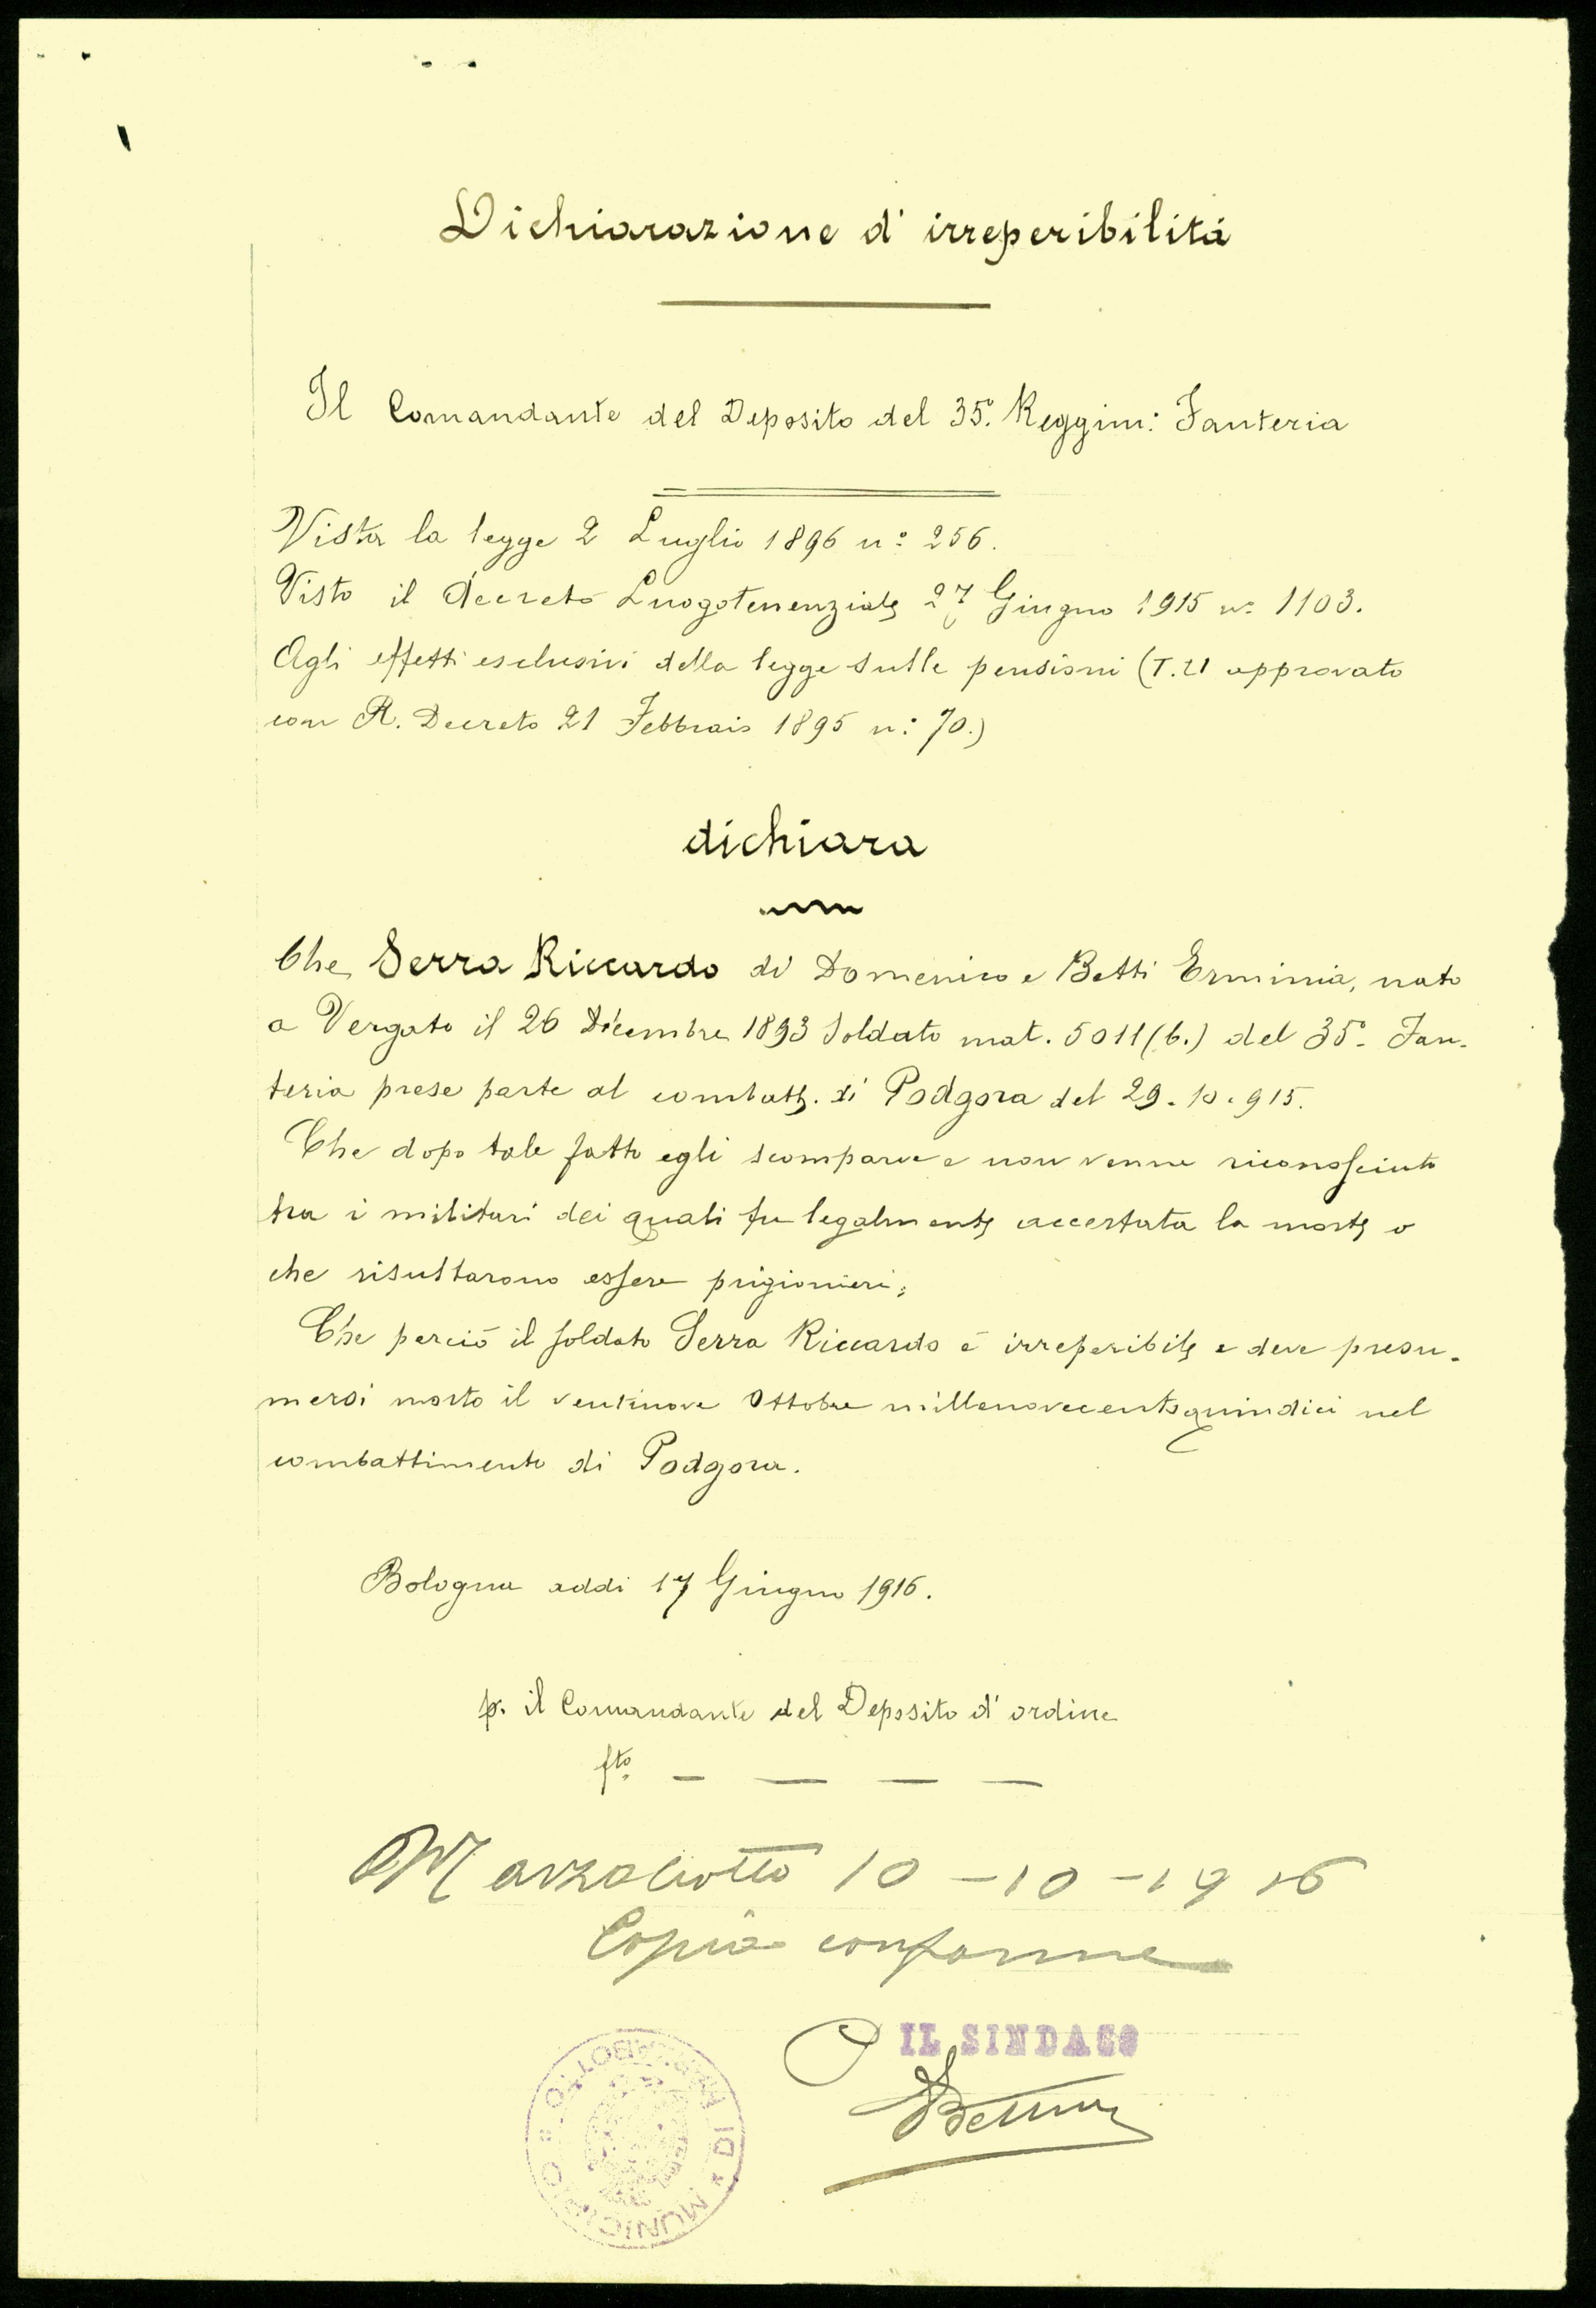 Dichiarazione d' irreperibilità
Il Comandante del Deposito del 35.° Reggim: Fanteria
Vista la legge 2 Luglio 1896 n: 256.
Visto il decreto Luogotenenziale 27 Giugno 1915 n: 1103.
Agli effetti esclusivi della legge sulle pensioni (T.U approvato
con R. Decreto 21 Febbraio 1895 n: 70.)
dichiara
Che Serra Riccardo di Domenico e Betti Erminia, nato
a Vergato il 26 Dicembre 1893 Soldato mat. 5011 (b.) del 35°. Fan-
teria prese parte al combatt. di Podgora del 29.10.915.
Che dopo tale fatto egli scomparve e non venne riconosciuto
tra i militari dei quali fu legalmente accertata la morte o
che risultarono essere prigionieri;
Che perciò il soldato Serra Riccardo è irreperibile e deve presu-
mersi morto il ventinove Ottobre millenovecentoquindici nel
combattimento di Podgora.
Bologna addi 17 Giugno 1916.
p. il Comandante del Deposito d' ordine
fto. — — — —
Marzabotto 10-10-1916
Copia conforme
IL SINDACO
MUNICIPIO DI MARZABOTTO